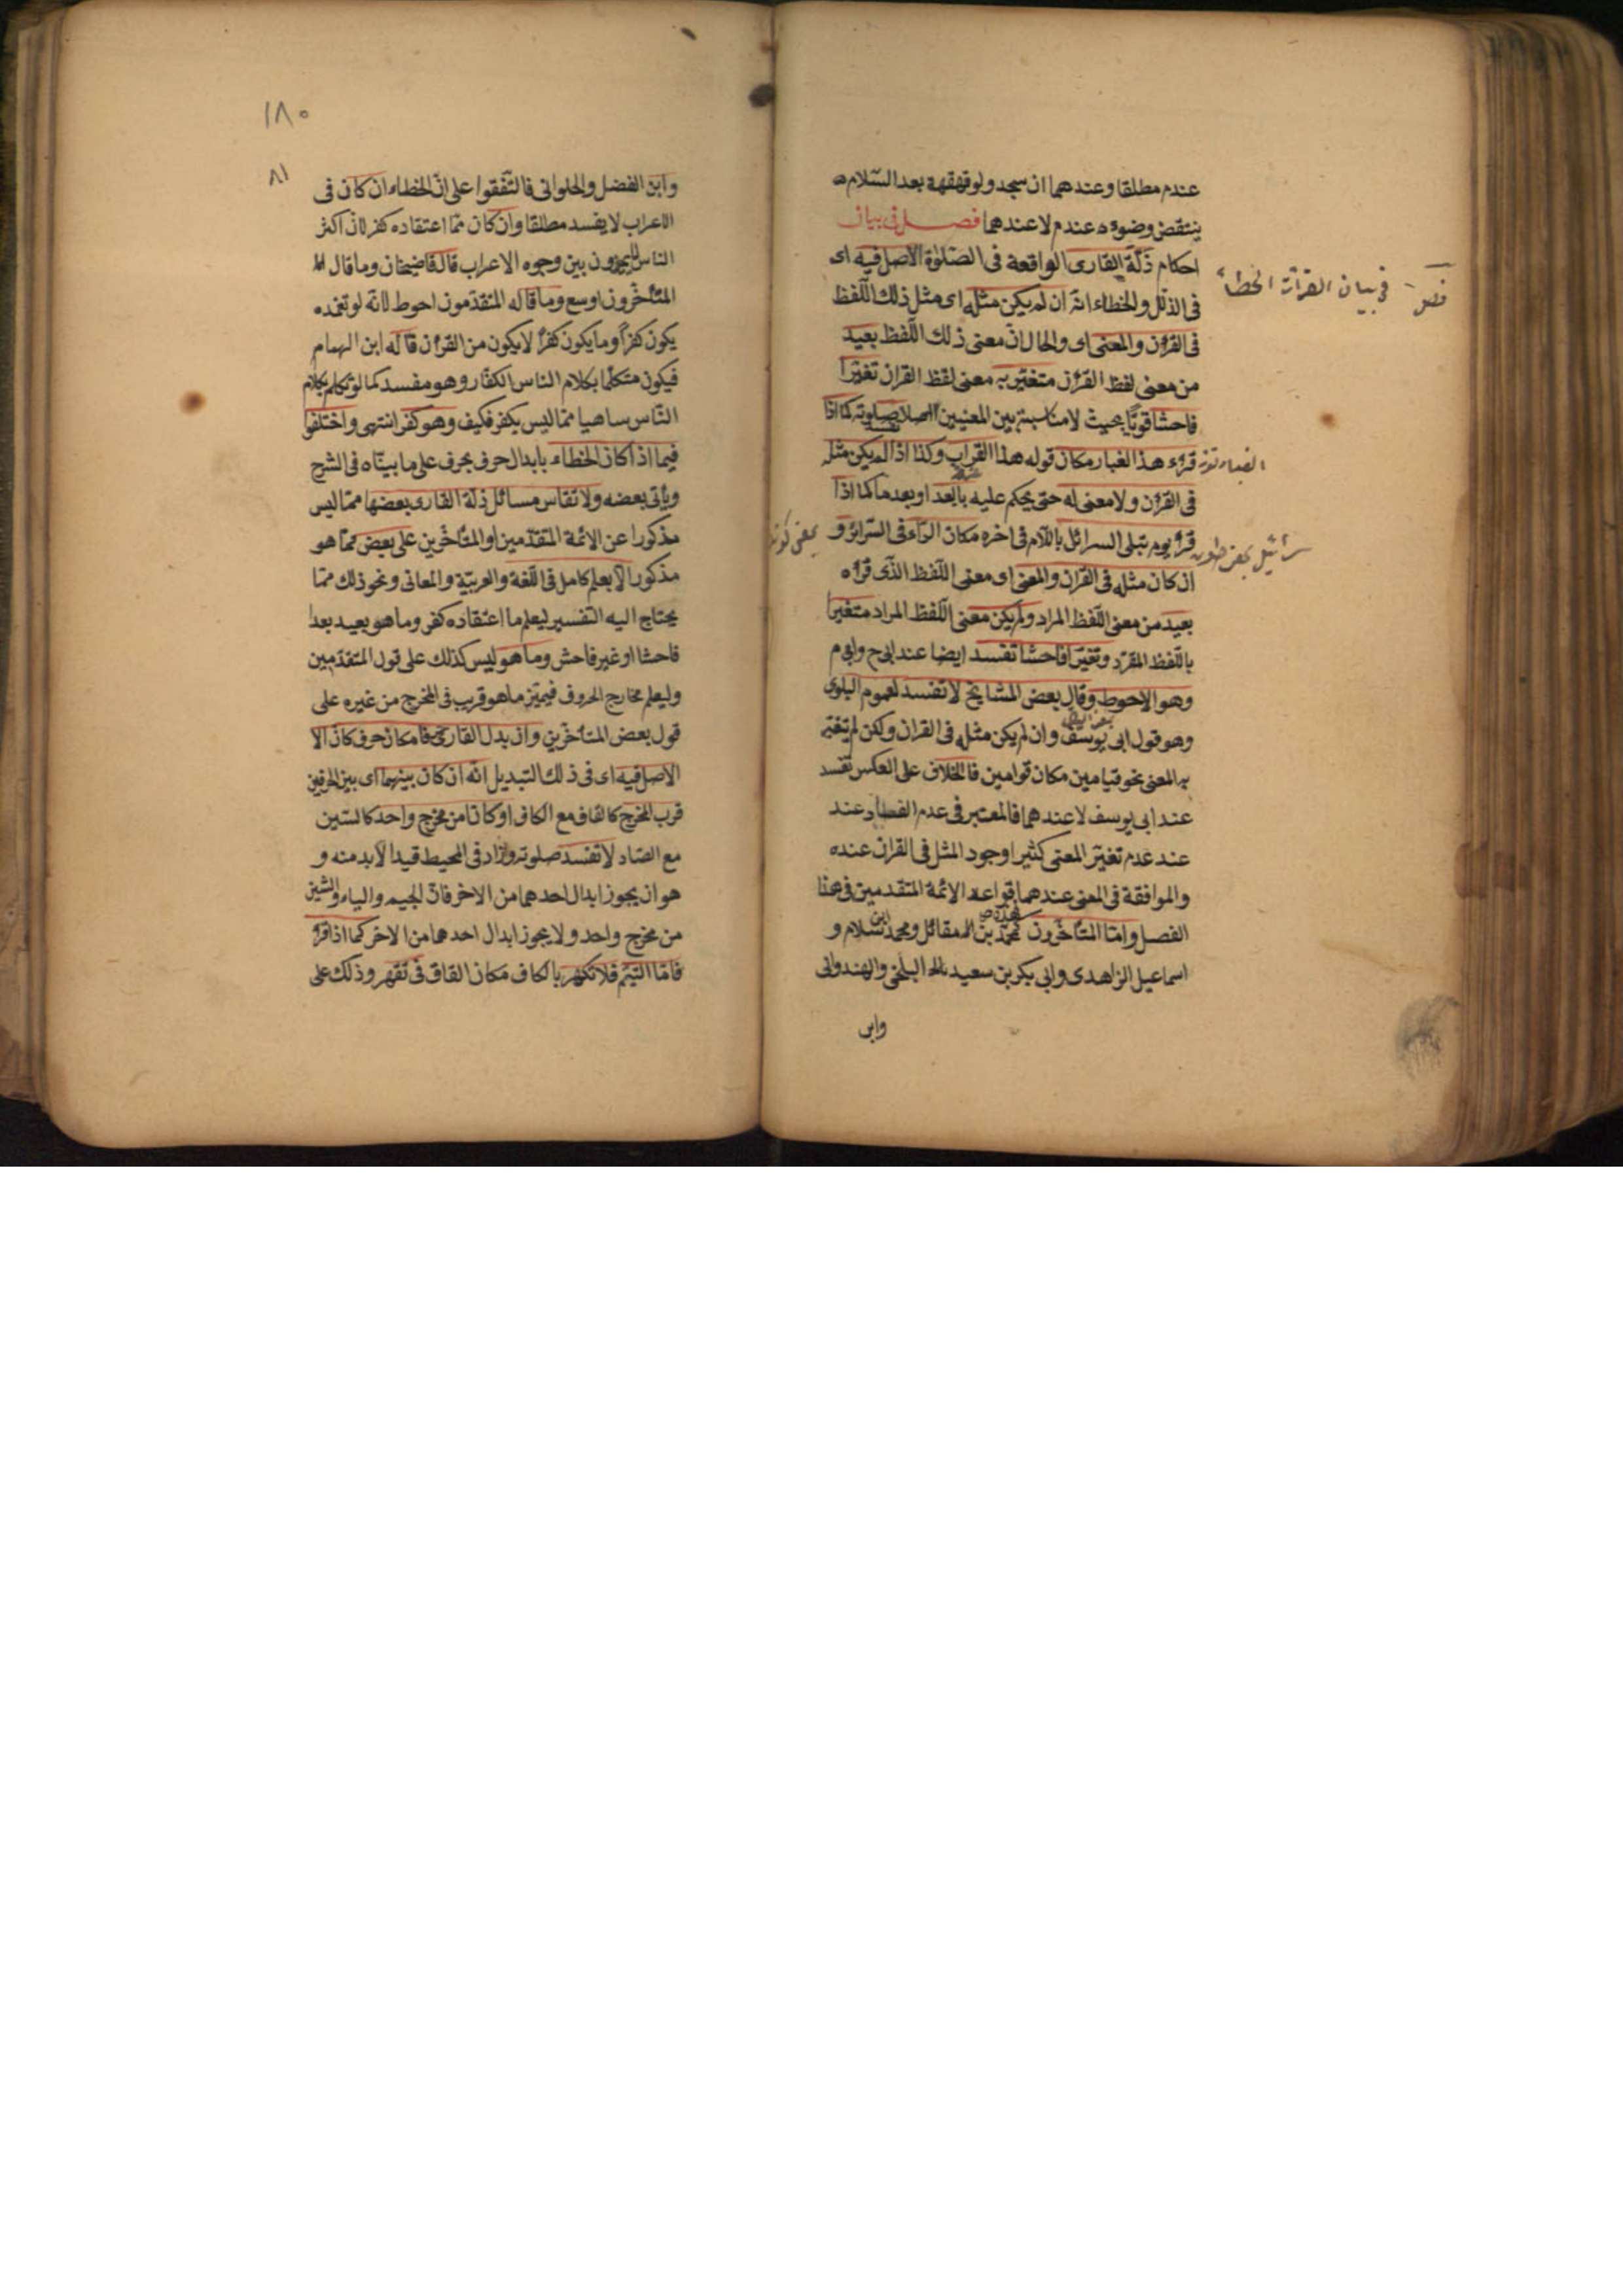 عندم مطلقا وعندهما ان سجد ولو قهقهة بعد السّلام ه
ينتقض وضوءه عندم لا عندهما فصل فى بيان
احكام ذلّة القارى الواقعة فى الصّلوة الاصل فيه اى
فى الذلل والخطاء انّه ان لم يكن مثله اى مثل ذلك اللّفظ
فى القرٔان والمعنى اى والحال انّ معنى ذلك اللّفظ بعيد
من معنى لفظ القرٔان متغيّر به معنى لفظ القران تغيّرا
فاحشا قويّا بحيث لا مناسبة بين المعنيين اصلا صلوته كما اذا
تفسد
قرٔء هذا الغبار مكان قوله هذا الغراب وكذا اذا لم يكن مثله
فى القرٔان ولا معنى له حتى يحكم عليه بالبعد او بعدما كما اذا
قرٔء يوم تبلى السرائل باللّام فى اخره مكان الرّاء فى السّرائر و
ان كان مثله فى القران والمعنى اى معنى اللّفظ الذّى قرٔه
بعيد من معنى اللّفظ المراد ولم يكن معنى اللّفظ المراد متغيرا
باللّفظ المقرّد وتغيّرا فاحشا تفسد ايضا عند ابى ح وابى م
وهو الاحوط وقال بعض المشايخ لا تفسد لعموم البلوى
وهو قول ابى يوسف وان لم يكن مثله فى القران ولكن لم يتغيّر
به المعنى نحو قيامين مكان قوامين فالخلاف على العكس تفسد
عند ابى يوسف لا عندهما فالمعتبر فى عدم الفساد عند
عند عدم تغيّر المعنى كثيرا وجود المثل فى القران عنده
والموافقة فى المعنى عندهما قواعد الائمة المتقدمين فى هذا
الفصل وامّا المتأخّرون محمّد بن مقاتل ومحمد ابن سلام و
اسماعيل الزاهدى وابى بكر بن سعيد البلخى والهندوانى
وابن
فصل فى بيان القرأت الخطأ
١٨٠
٨١
وابن الفضل والحلوانى فالتّفقوا على انّ الخطاء ان كان فى
الاعراب لا يفسد مطلقا وان كان ممّا اعتقاده كفر لانّ اكثر
الناس لا يميزون بين وجوه الاعراب قال قاضيخان وما قال
المتأخّرون اوسع وما قاله المتقدّمون احوط لانّه لو تعمّده
يكون كفرًا وما يكون كفرًا لا يكون من القرٔان قاله ابن الهمام
فيكون متكلّما بكلام الناس الكفّار وهو مفسد كما لو تكلم بكلام
النّاس ساهيا ممّا ليس بكفر فكيف وهو كفر انتهى واختلفوا
فيما اذا كان الخطاء بابدال حرف بحرف على ما بيّنّاه فى الشرح
ويأتى بعضه ولا تقاس مسائل ذلّة القارى بعضها ممّا ليس
مذكورا عن الائمة المتقدّمين او المتأخّرين على بعض ممّا هو
مذكور الّا بعلم كامل فى اللّغة والعربيّة والمعانى ونحو ذلك ممّا
يحتاج اليه التفسير ليعلم ما اعتقاده كفر وما هو بعيد بعدا
فاحشا او غير فاحش وما هو ليس كذلك على قول المتقدّمين
وليعلم مخارج الحروف فيميّز ما هو قريب فى المخرج من غيره على
قول بعض المتأخّرين وان بدل القارى حرفا مكان حرف كان الا
الاصل فيه اى فى ذلك التبديل انّه ان كان بينهما اى بين الحرفين
قرب المخرج كالقاف مع الكاف او كانا من مخرج واحد كالسّين
مع الصّاد لا تفسد صلوته وزاد فى المحيط قيدا لا بد منه و
هو ان يجوز ابدال احدهما من الاخر فانّ الجيم والياء والشين
من مخرج واحد ولا يجوز ابدال احدهما من الاخر كما اذا قرٔ
فامّا اليتيم فلا تكهر بالكاف مكان القاف فى تقهر وذلك على